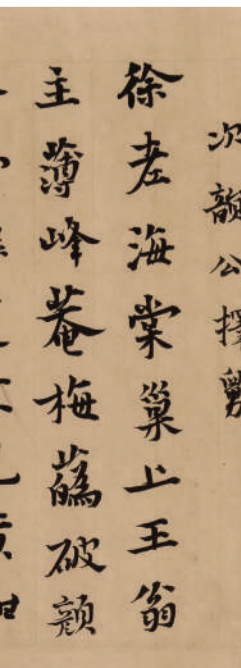 次韻公擇舅
徐老海棠巢上王翁
主薄峰菴梅蘤破顔